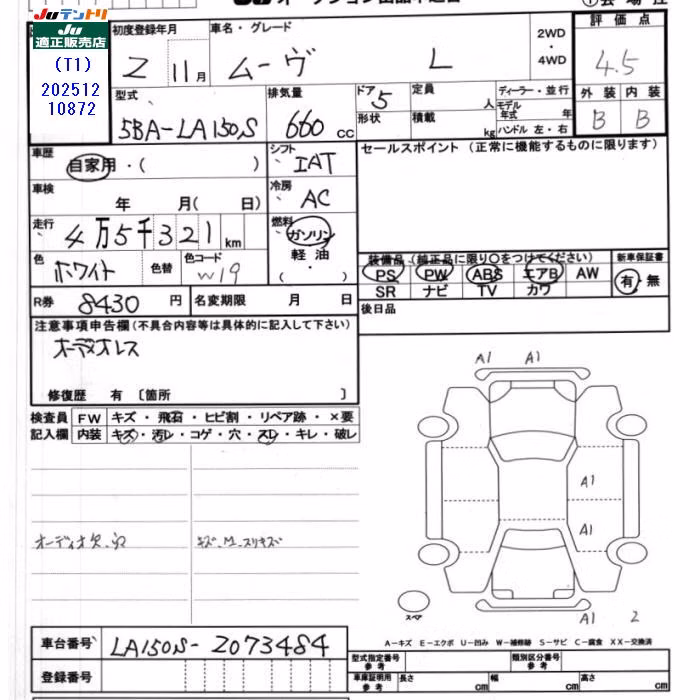 Juテントリ
JU 適正販売店
(T1)
202512
10872
初度登録年月
2 11月
車名・グレード
ムーヴ L
2WD
・
4WD
評価点
4.5
外装 内装
B B
型式
5BA-LA150S
排気量
660 cc
ドア 5
形状
定員 人
積載 kg
ディーラー・並行
モデル年式 年
ハンドル 左・右
車歴
自家用・( )
シフト
IAT
セールスポイント (正常に機能するものに限ります)
車検
年 月( 日)
冷房
AC
走行
4万5千321km
燃料
ガソリン
軽油
( ・ )
色
ホワイト
色替
色コード
W19
装備品 (純正品に限り○をつけてください)
PS PW ABS エアB AW
SR ナビ TV カワ
新車保証書
有・無
R券 8430円
名変期限 月 日
後日品
注意事項申告欄(不具合内容等は具体的に記入して下さい)
オーディオレス
修復歴 有 〔箇所 〕
検査員
記入欄
FW キズ・飛石・ヒビ割・リペア跡・×要
内装 キズ・汚レ・コゲ・穴・スレ・キレ・破レ
A1 A1
A1
A1
オーディオ欠
キズ、M、スリキズ
スペア
A1 2
A-キズ E-エクボ U-凹み W-補修跡 S-サビ C-腐食 XX-交換済
車台番号 LA150S-2073484
登録番号
型式指定番号 参考
類別区分番号 参考
車庫証明用 参考
長さ cm 幅 cm 高さ cm